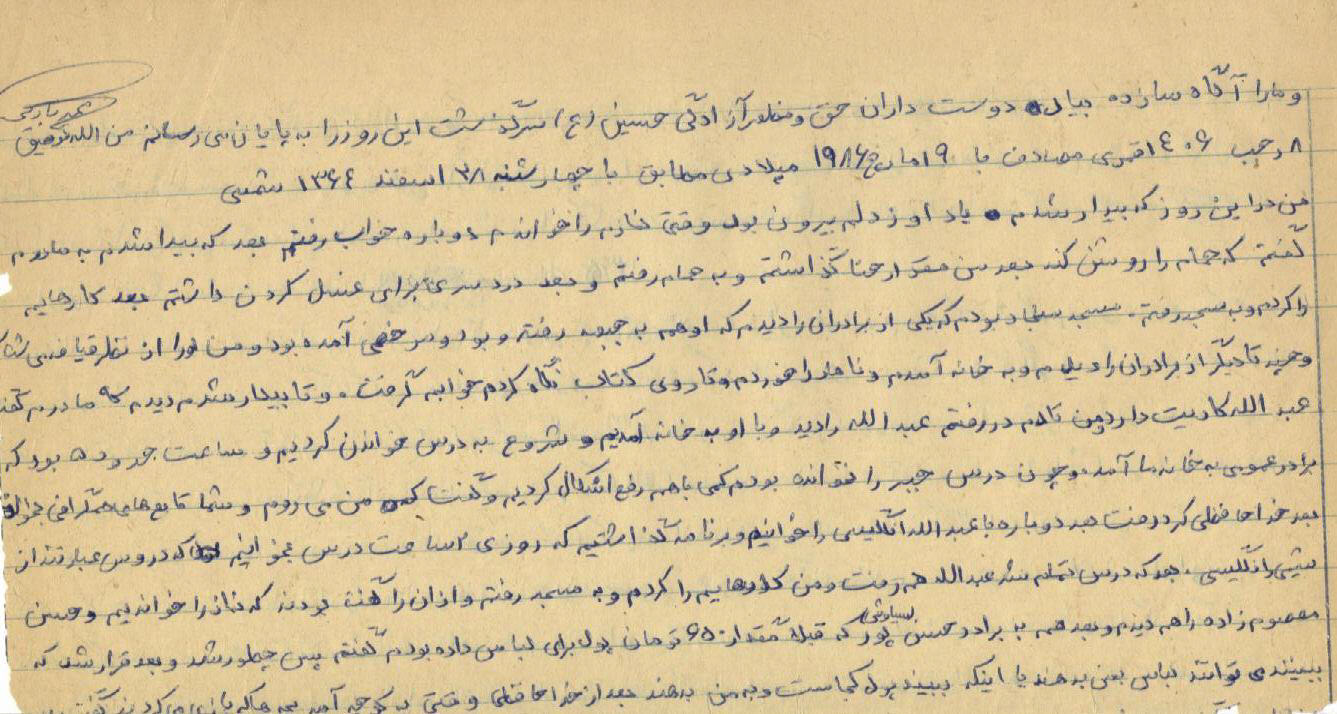 و مارا آگاه سازد بیاد دوست داران حق و مظلوم آزادگی حسین (ع) سرگذشت این روز را به پایان می رسانم من الله توفیق
۸ رجب ۱٤۰۶ قمری مصادف با ۱۹ مارچ ۱۹۸۶ میلادی مطابق با چهارشنبه ۲۸ اسفند ۱۳۶٤ شمسی
من در این روز که بیدار شدم یاد او ز دلم بیرون بود وقتی نمازم را خواندم دوباره خواب رفتم بعد که بیدا شدم به مادرم
گفتم که حمام را روشن کند بعد من مقدار حنا گذاشتم و به حمام رفتم و بعد درد سری برای غسل کردن داشتم بعد کارهایم
را کردم و به مسجد رفتم. مسجد سجاد بودم که یکی از برادران را دیدم که او هم به جبهه رفته و بود و مرخصی آمده بود و من اورا از نظر قیافه می
و چند تا دیگر از برادران را دیدم و به خانه آمدم و ناهار را خوردم و تا روی کتاب نگاه کردم خوابم گرفت. و تا بیدار شدم دیدم که مادرم
عبد الله کاریت دارد من تا دم در رفتم عبد الله را دید و با او به خانه آمدیم و شروع به درس خواندن کردیم و ساعت حدود ۵ بود که
برادر عمویم به خانه ما آمد و چون درس جبر را نخوانده بودم کمی باهم رفع اشکال کردیم و گفت که من می روم و شما تابع های همگرافی
بعد خداحافظی کرد رفت بعد دوباره با عبد الله انگلیسی را خواندیم و برنامه گذاشتیم که روزی ساعت درس بخوانیم که دروس عبارتند از
شیمی انگلیسی. بعد که درس تمام شد عبد الله هم رفت و من کارهایم را کردم و به مسجد رفتم و اذان را گفته بودند که نماز را خواندیم و حسن
معصوم زاده را هم دیدم و بعد هم به برادر حسن پور که قبلاً مقدار ۶۵۰ تومان پول برای لباس داده بودم گفتم پس چطور شد و بعد قرار شد که
ببینند می توانند لباس بمن بدهند یا اینکه ببیند پول کجاست و به من بدهند بعد از خداحافظی وقتی به کوچه آمدم بچه ها که بازی می کردند